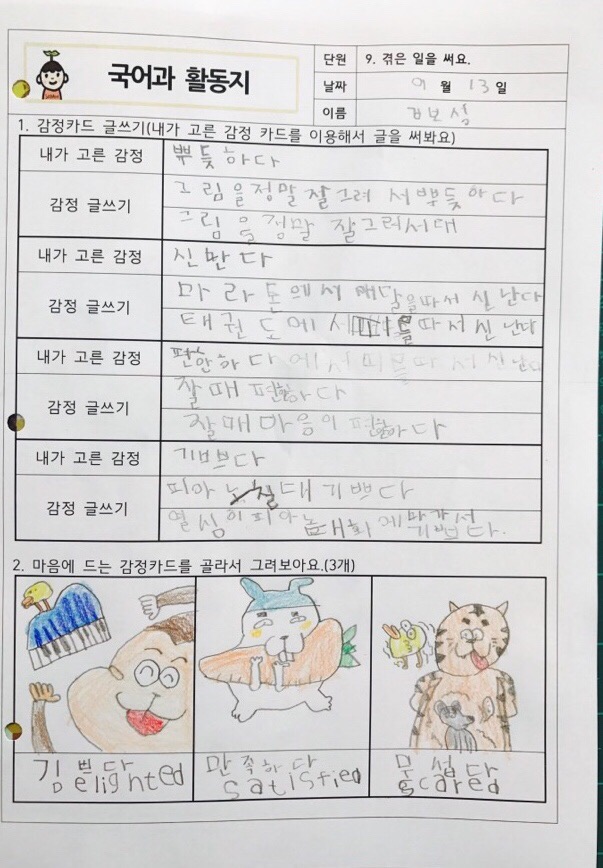 국어과 활동지
단원 9. 겪은 일을 써요.
날짜 9 월 13 일
이름
1. 감정카드 글쓰기(내가 고른 감정 카드를 이용해서 글을 써봐요)
내가 고른 감정 뿌듯하다
감정 글쓰기
그림을정말 잘그려 서뿌듯하다
그림을 정말 잘그려서대
내가 고른 감정 신난다
감정 글쓰기
마라톤에서 메달을따서 신난다
태권도에서 를따서 신난다
내가 고른 감정 편안하다
감정 글쓰기
잘때 편안하다
잘때마음이 편안하다
내가 고른 감정 기쁘다
감정 글쓰기
피아노 칠때 기쁘다
열심히피아노 대회에 나가서 기쁘다.
2. 마음에 드는 감정카드를 골라서 그려보아요.(3개)
만족하다
satisfied
무섭다
scared
elighted